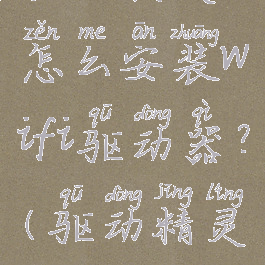 zěn me ān zhuāng
怎么安装W
qū dòng qì
ifi驱动器?
qū dòng jīng líng
(驱动精灵